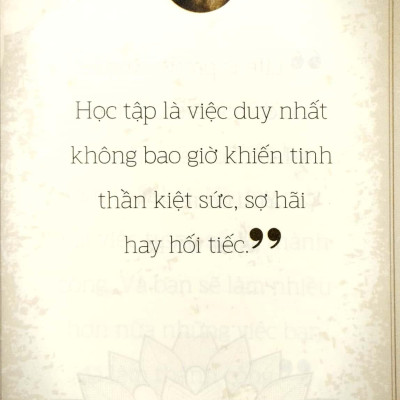 Học tập là việc duy nhất
không bao giờ khiến tinh
thần kiệt sức, sợ hãi
hay hối tiếc.”